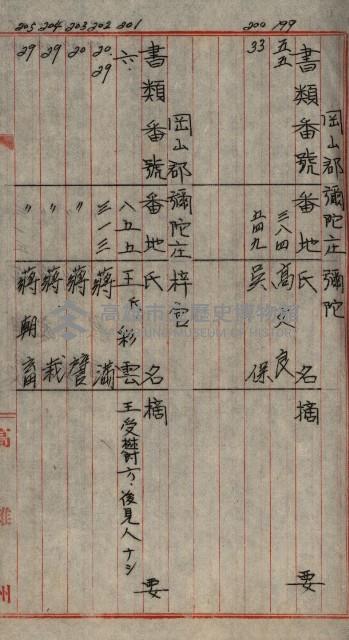 岡山郡彌陀庄彌陀
書類番號 番地 氏名 摘要
199 五五 三八四 高 良
200 33 五四九 吳 保
岡山郡彌陀庄梓官
書類番號 番地 氏名 摘要
201 六、 八五五 王氏彩雲 王受欝方、後見人ナシ
202 20 29 三一三 蔣 满
203 20 〃 蔣 㨗
204 29 〃 蔣 栽
205 29 〃 蔣朝畜
高雄州
高雄市立歷史博物館
KAOHSIUNG MUSEUM OF HISTORY